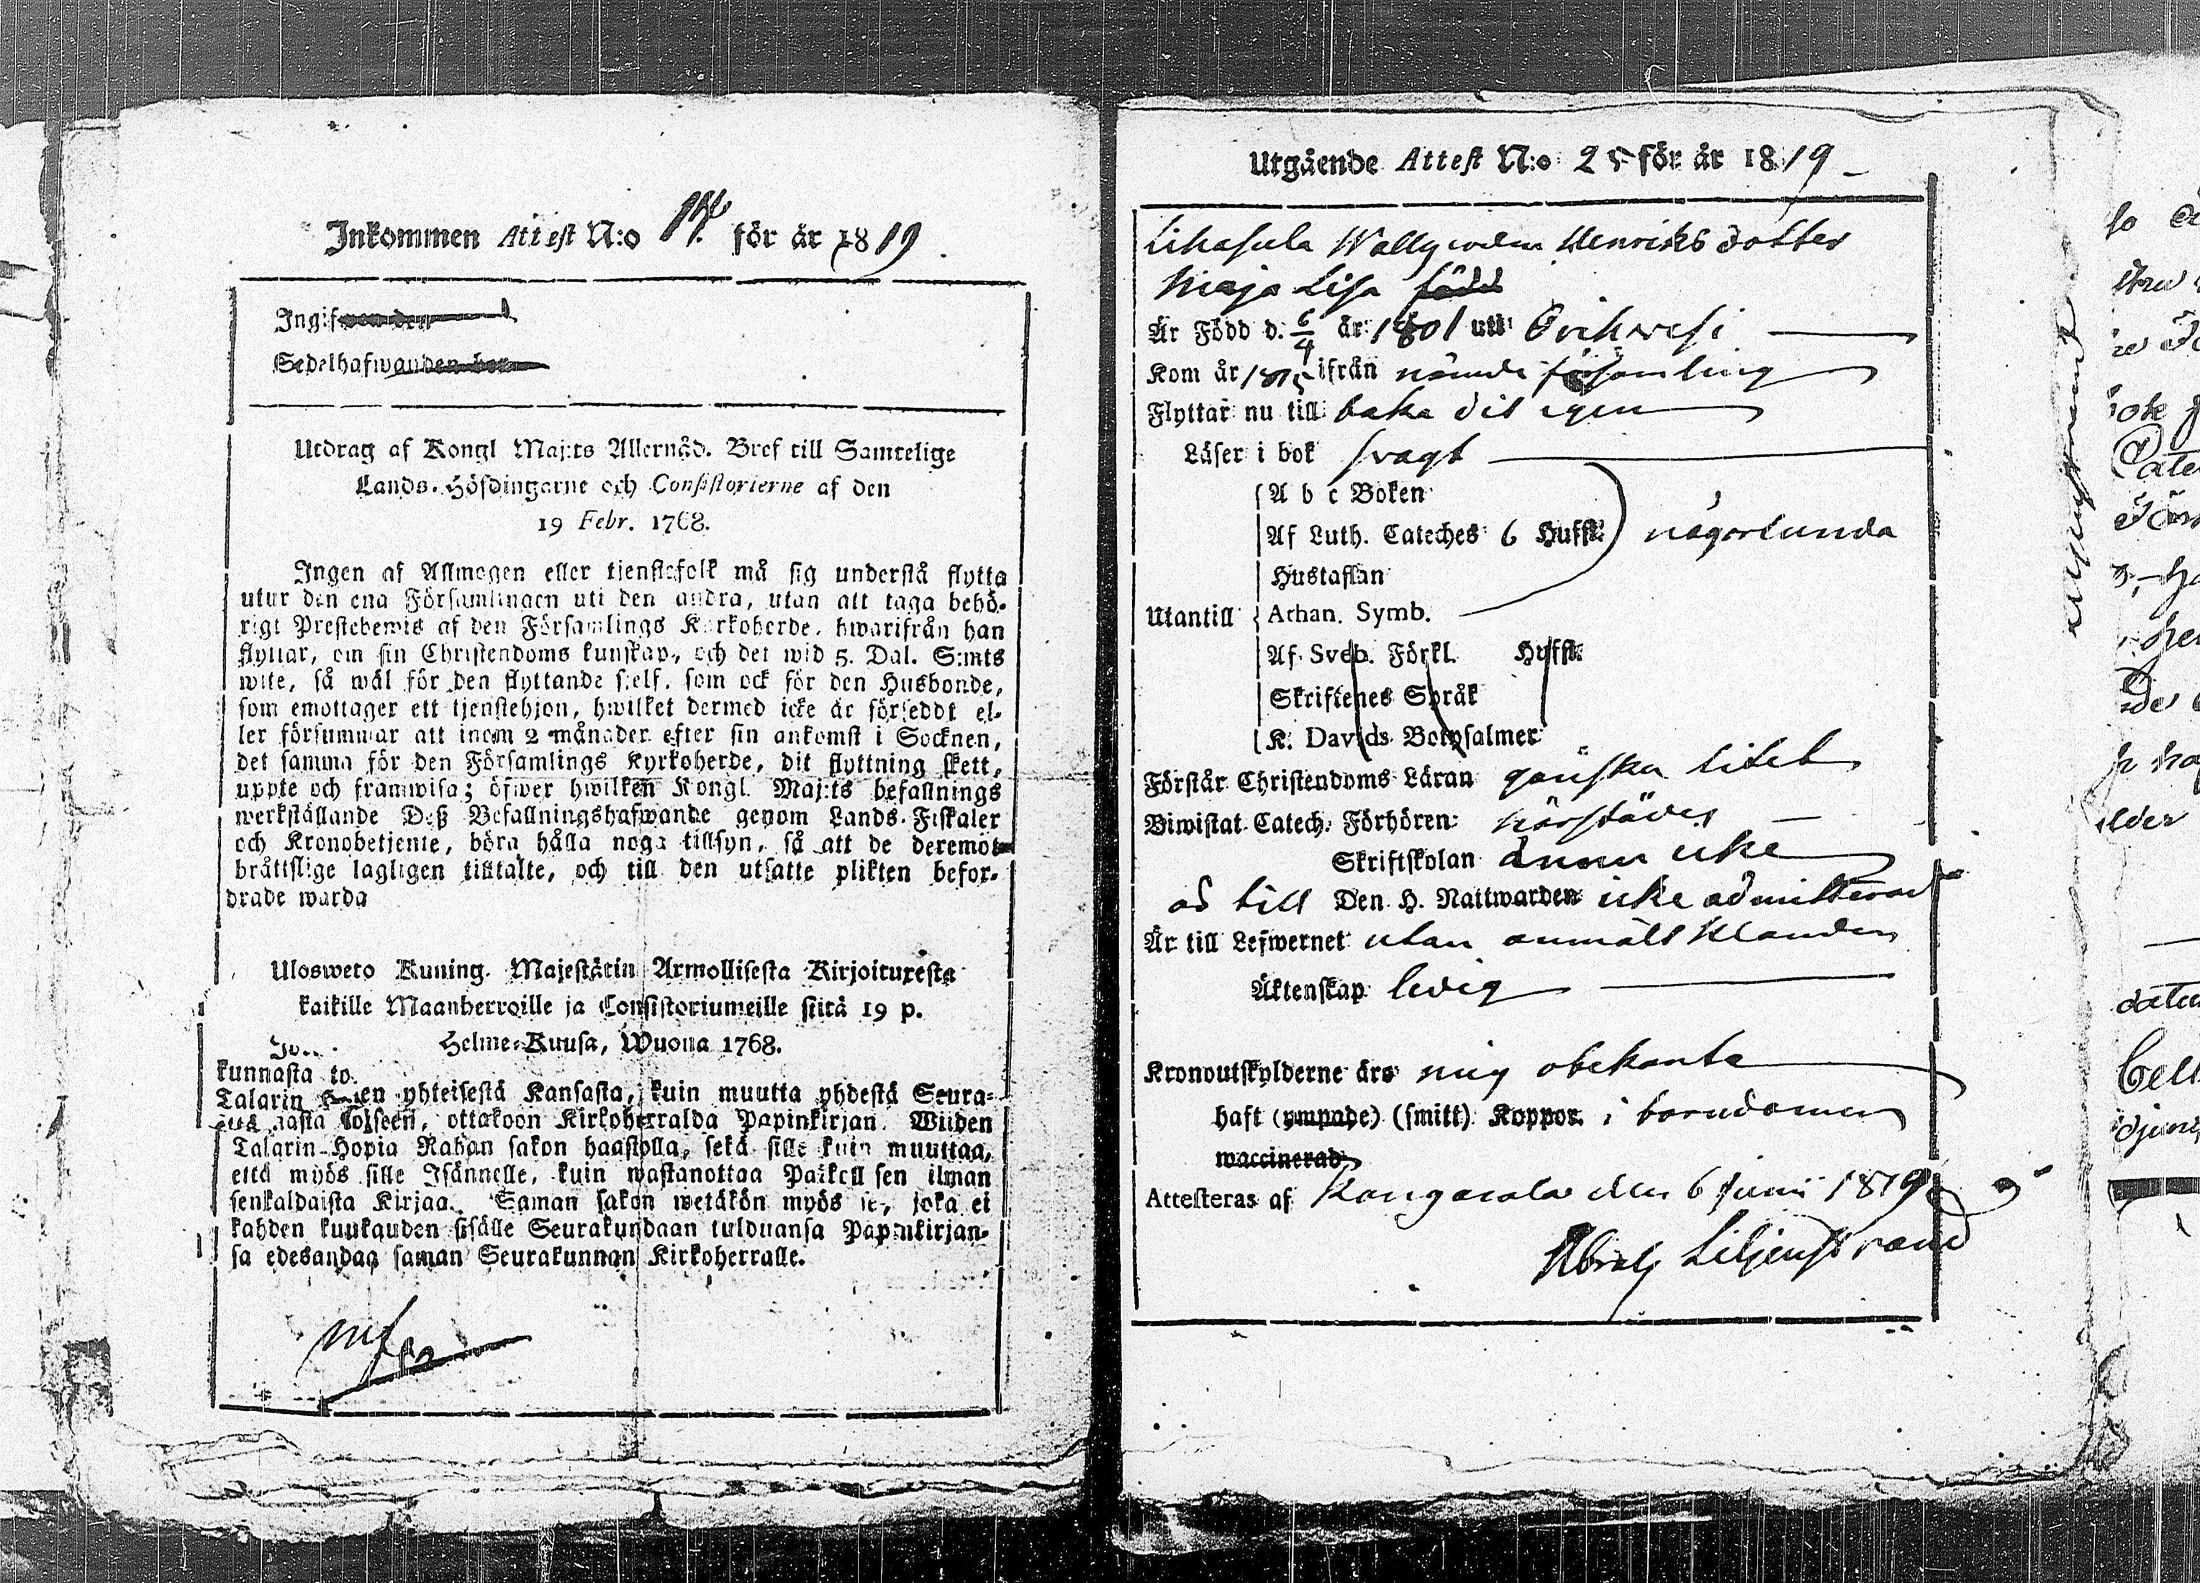 Inkommen Attest N:o 14. för år 1819.
Ingifwen den
Sedelhafwanden bor
Utdrag af Kongl Maj:ts Allernåd. Bref till Samtelige
Lands-Höfdingarne och Consistorierne af den
19 Febr. 1768.
Ingen af Allmogen eller tjenstefolk må sig understå flytta
utur den ena Församlingen uti den andra, utan att taga behö-
rigt Prestebewis af den Församlings Kyrkoherde, hwarifrån han
flyttar, om sin Christendoms kunskap, och det wid 5. Dal. S:mts
wite, så wäl för den flyttande sielf, som ock för den Husbonde,
som emottager ett tjenstehjon, hwilket dermed icke är förseddt el-
ler försummar att inom 2 månader efter sin ankomst i Socknen,
det samma för den Församlings Kyrkoherde, dit flyttning skett,
uppte och framwisa; öfwer hwilken Kongl. Maj:ts befallnings
werkställande Deß Befallningshafwande genom Lands-Fiskaler
och Kronobetjente, böra hålla noga tillsyn, så att de deremot
bråttslige lagligen tilltalte, och till den utsatte plikten befor-
drade warda
Ulosweto Kuning. Majestätin Armollisesta Kirjoituxesta
kaikille Maanherroille ja Consistoriumeille siitä 19 p.
Helme-Kuusa, Wuona 1768.
kunnasta to
Talarin en yhteisestä Kansasta, kuin muutta yhdestä Seura-
nasta toiseen, ottakoon Kirkoherralda Papinkirjan. Wiiden
Talarin Hopia Rahan sakon haastolla, sekä sille kuin muuttaa,
että myös sille Isännelle, kuin wastanottaa Palkoll sen ilman
senkaldaista Kirjaa. Saman sakon wetäkön myös se, joka ei
kahden kuukauden sisälle Seurakundaan tulduansa Papinkirjan-
sa edesandaa saman Seurakunnan Kirkoherralle.
Utgående Attest N:o 25 för år 1819
Henriks dotter
Maja Lisa född
Är Född d. 6/4 år 1801 uti Orihwesi
Kom år 1815 ifrån nämde församling
Flyttar nu till baka dit igen
Läser i bok svagt
A b c Boken
Af Luth. Cateches 6 Hufst: någorlunda
Hustaflan
Utantill Athan. Symb.
Af Sveb. Förkl. Hufst:
Skriftenes Språk
K. Davids Botpsalmer
Förstår Christendoms Läran ganska litet
Biwistat Catech. Förhören härstädes
Skriftskolan ännu icke
och till Den H. Nattwarden icke admitterad
Är till Lefwernet utan anmält klander
Äktenskap ledig
Kronoutskylderne äro mig obekanta
haft (ympade) (smitt) Koppor i barndomen
waccinerad
Attesteras af Kangasala den 6 Junii 1819
Abrah Liljenstrand